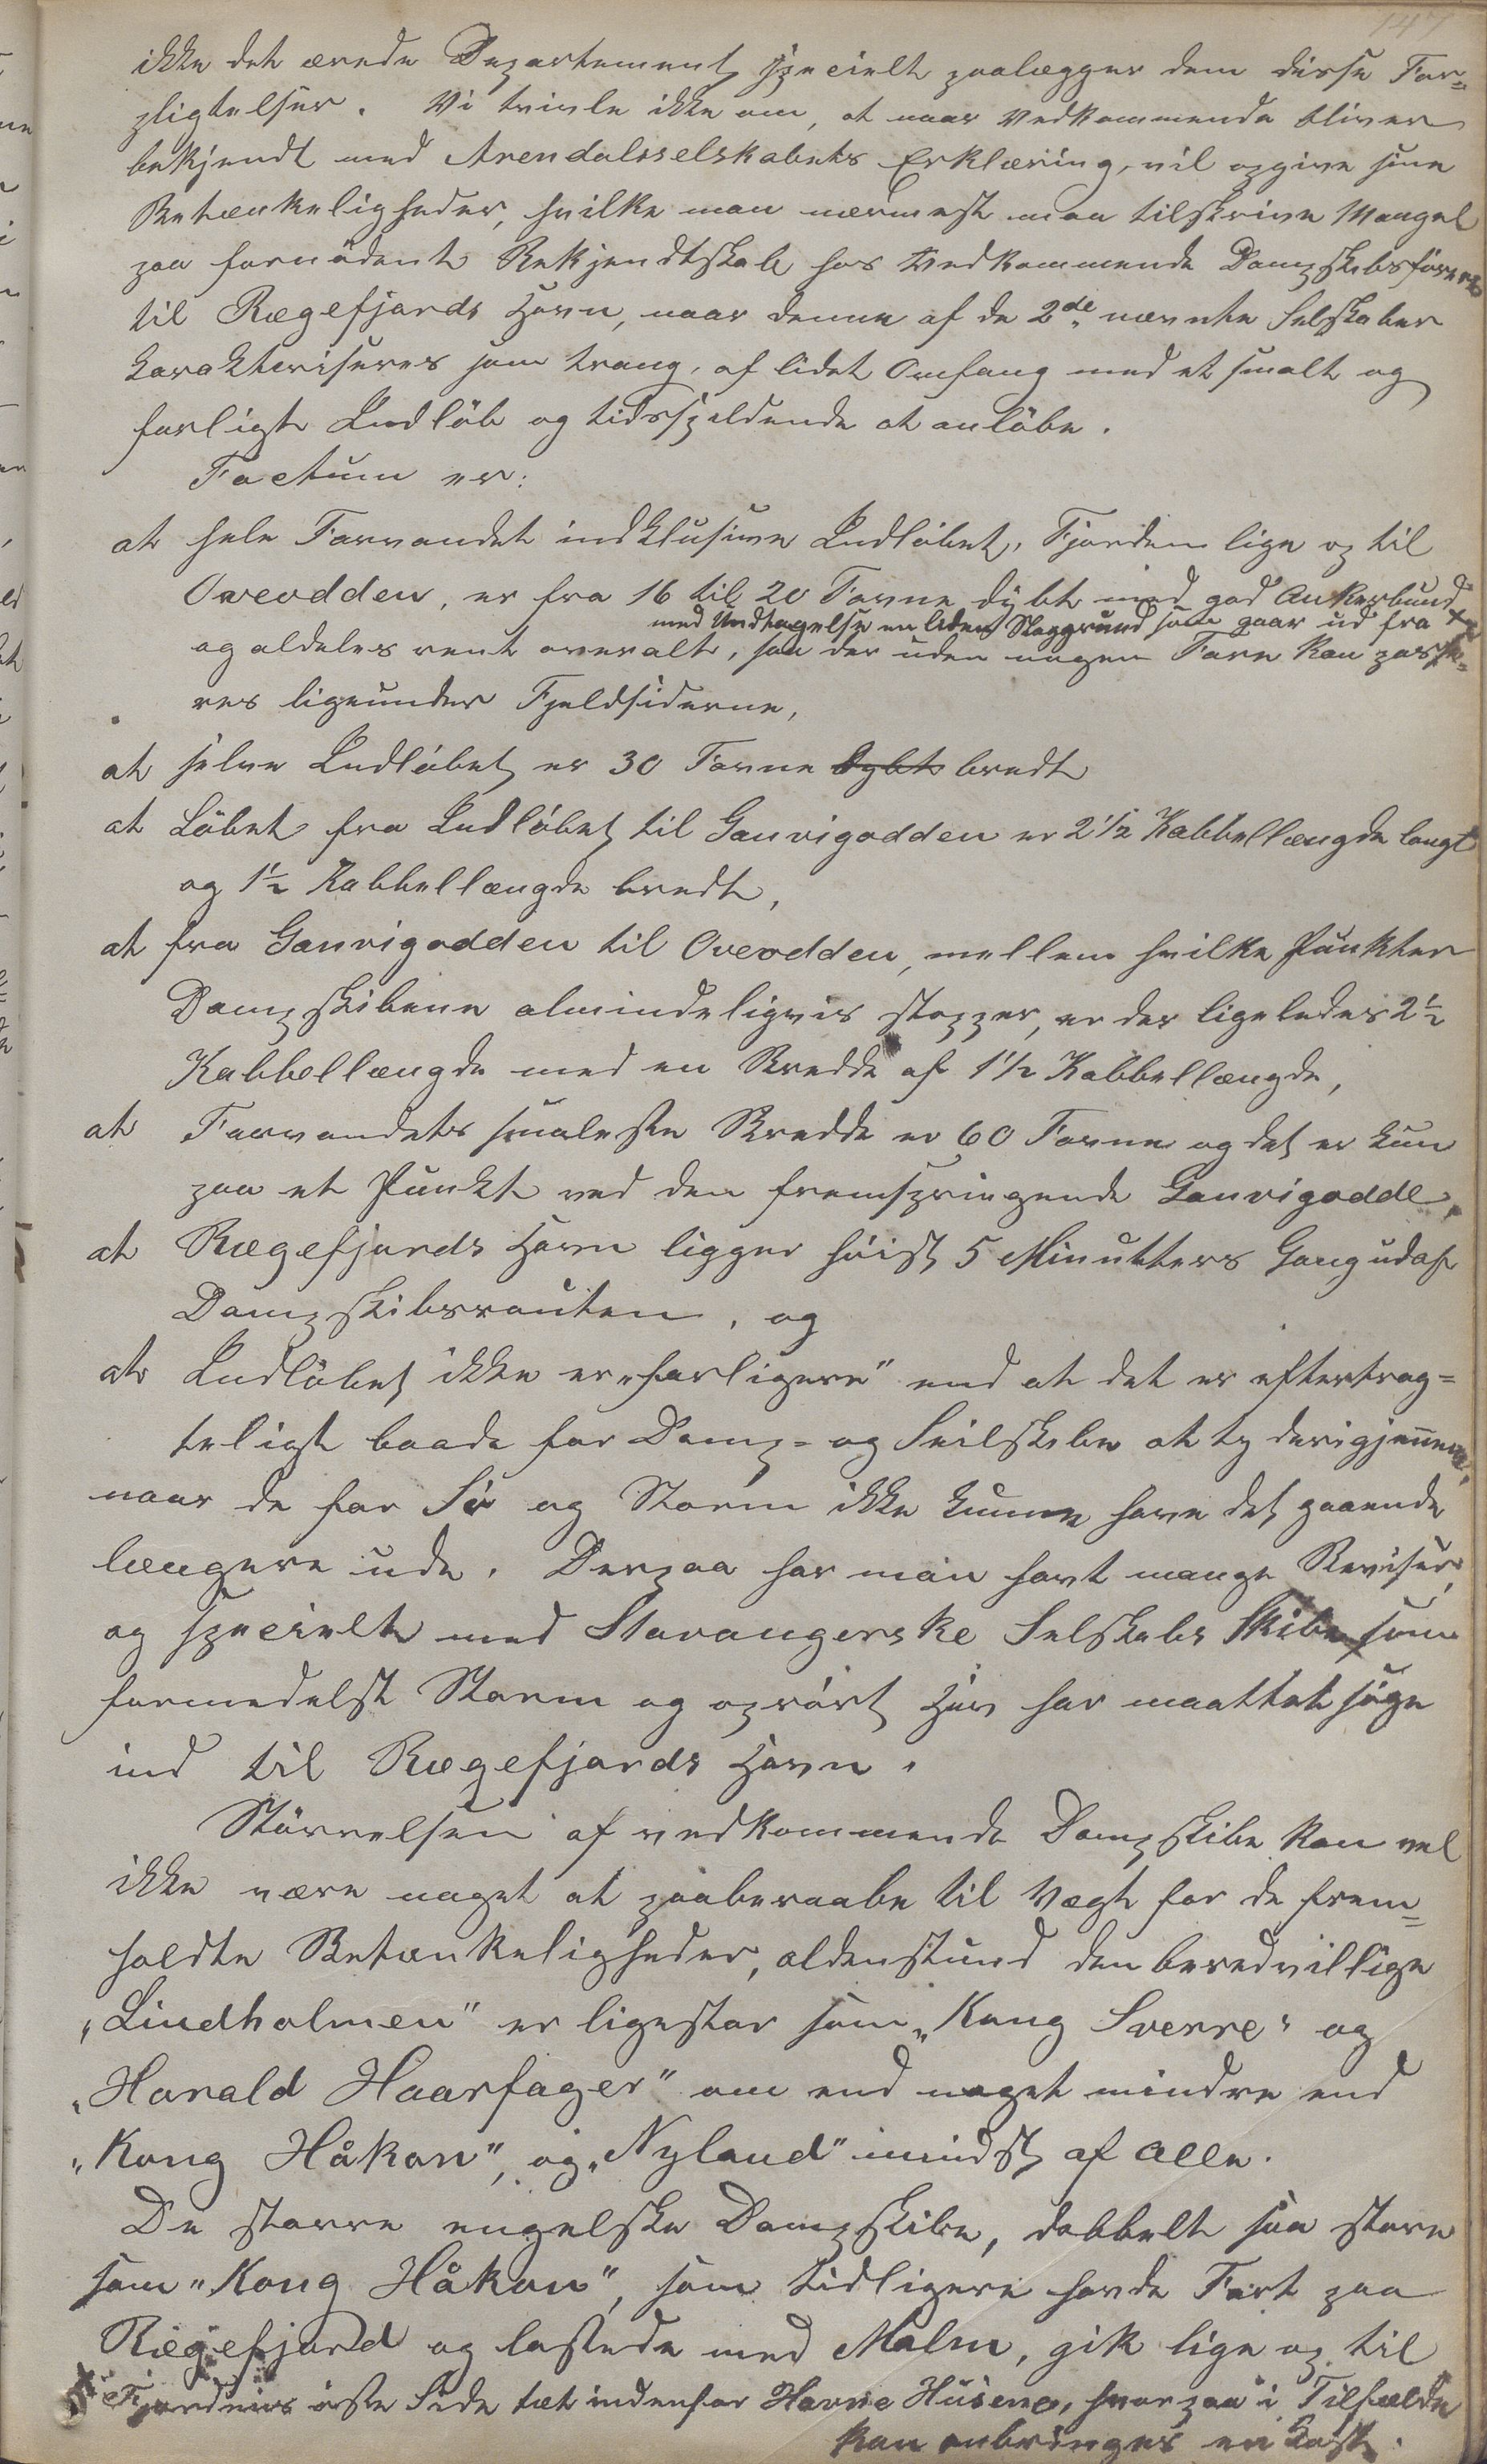 147
ikke det ærede Departement specielt paalægger dem disse For=
pligtelser. Vi tvivle ikke om, at naar Vedkommende bliver
bekjendt med Arendalsselskabets Erklæring, vil opgive sine
Betænkeligheder, hvilke man nærmest maa tilskrive Mangel
paa fornödent Bekjendtskab hos Vedkommende Dampskibsförere
til Rægefjords Havn, naar denne af de 2de nævnte Selskaber
karakteriseres som trang, af lidet Omfang med et smalt og
farligt Indlöb og tidsspildende at anlöbe.
Factum er:
at hele Farvandet indklusive Indlöbet, Fjorden lige op til
Oveodden, er fra 16 til 20 Favne dybt med god Ankerbund
med Undtagelse en liden Steggrund som gaar ud fra x
og aldeles rent overalt, saa der uden nogen Fare kan passe=
res ligeunder Fjeldsiderne,
at selve Indlöbet er 30 Favne dybt bredt
at Löbet fra Indlöbet til Ganvigodden er 2 1/2 Kabbellængde langt
og 1 1/2 Kabbellængde bredt,
at fra Ganvigodden til Oveodden, mellem hvilke Punkter
Dampskibene almindeligvis stopper, er der ligeledes 2 1/2
Kabbellængde med en Bredde af 1 1/2 Kabbellængde,
at Farvandets smaleste Bredde er 60 Favne og det er kun
paa et Punkt ved den fremspringende Ganvigodde,
at Rægefjords Havn ligger höist 5 Minutters Gang udaf
Dampskibsrouten, og
at Indlöbet ikke er „farligere" end at det er eftertrag=
teligt baade for Damp= og Seilskibe at ty derigjennem,
naar de for Sö og Storm ikke kunne have det gaaende
længere ude. Derpaa har man havt mange Beviser,
og specielt med Stavangerske Selskabs Skibe som
formedelst Storm og oprört Hav har maattet söge
ind til Rægefjords Havn.
Störrelsen af vedkommende Dampskibe kan vel
ikke være noget at paaberaabe til Vægt for de frem=
holdte Betænkeligheder, aldenstund den beredvillige
„Lindholmen" er ligestor som „Kong Sverre" og
„Harald Haarfager" om end noget mindre end
„Kong Håkon", og „Nyland" mindst af alle.
De större engelske Dampskibe, dobbelt saa store
som „Kong Håkon", som tidligere havde Fart paa
Rægefjord og lastede med Malm, gik lige op til
x Fjordens öste Side tæt indenfor Havne Husene, hvorpaa i Tilfælde
kan anbringes en Kost.